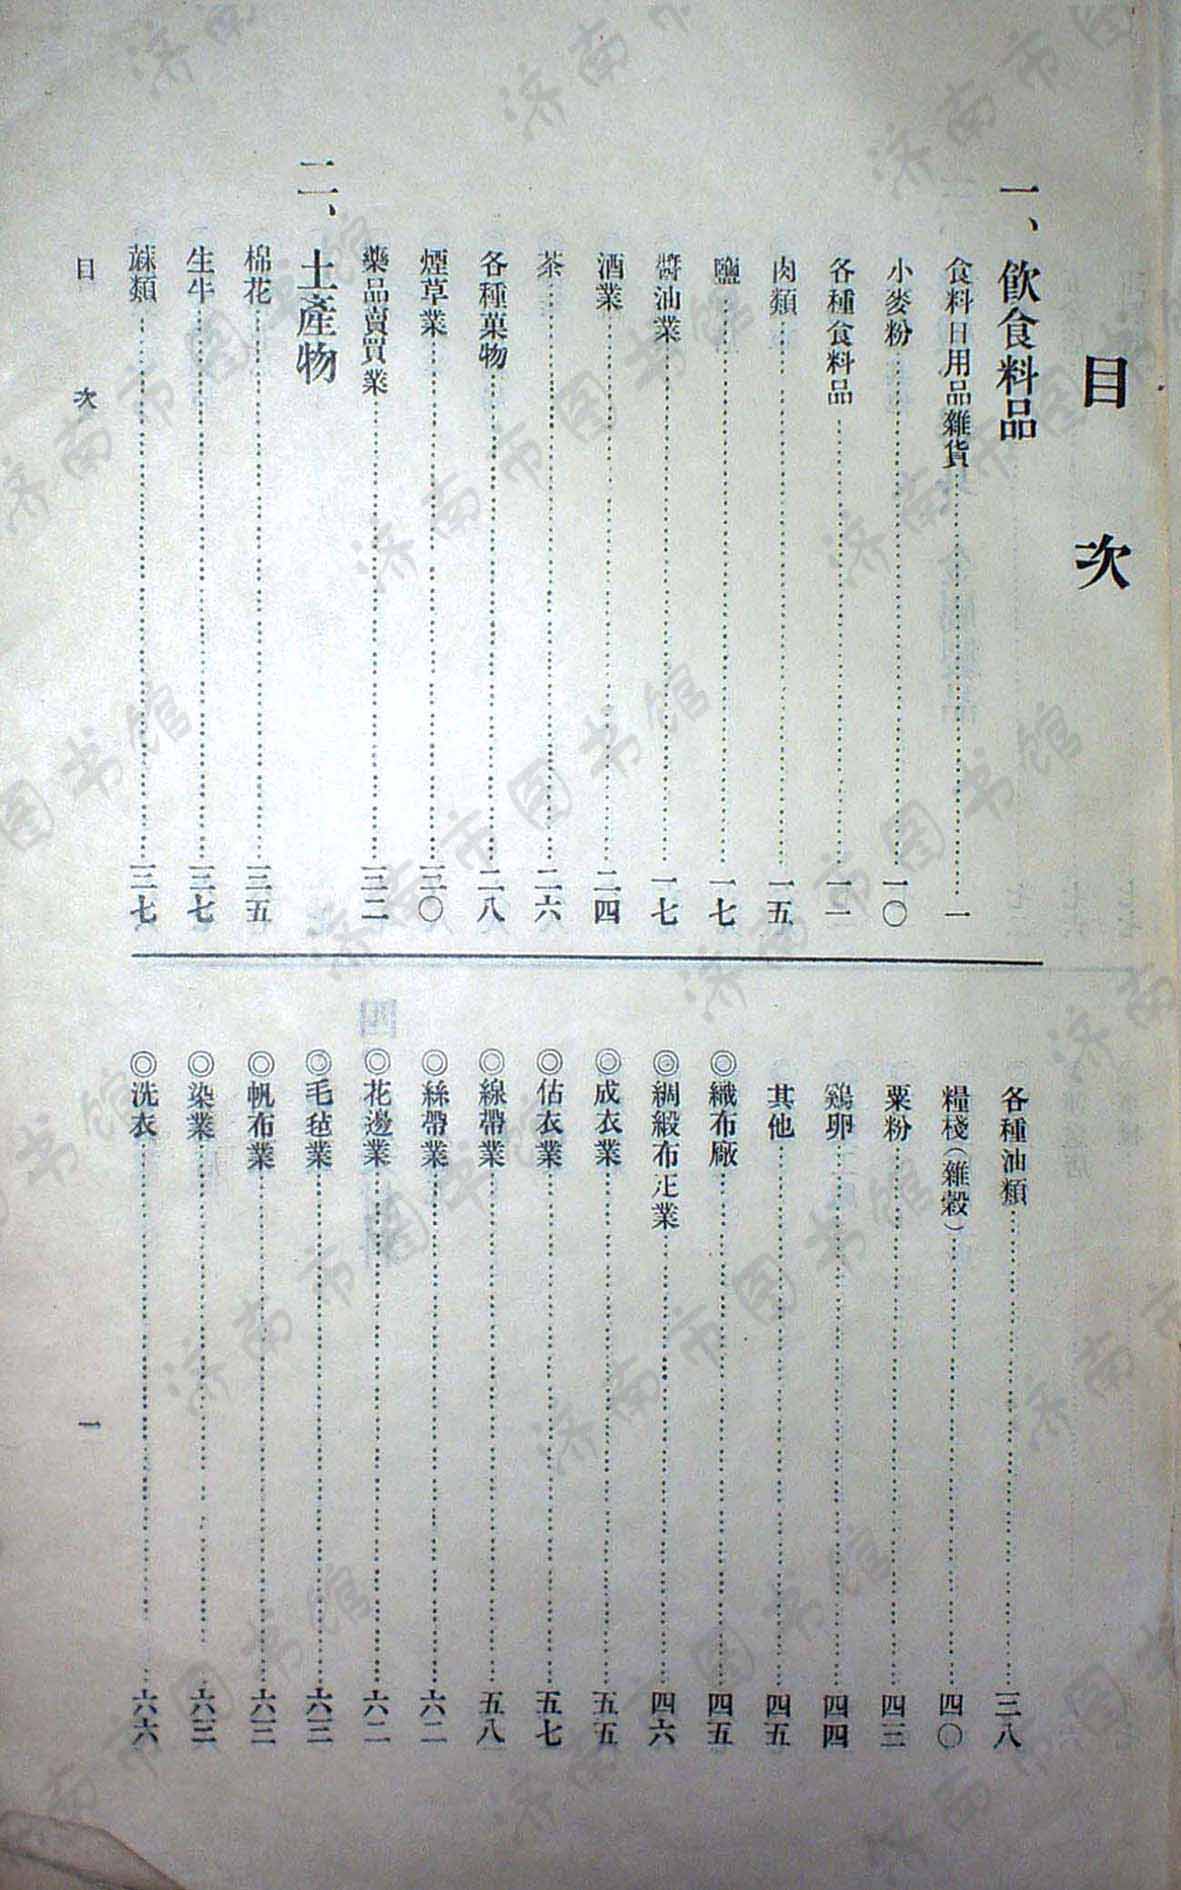 目次
一、飲食料品
食料日用品雜貨……一
小麥粉……一〇
各種食料品……一一
肉類……一五
鹽……一七
醬油業……一七
酒業……二四
茶……二六
各種菓物……二八
煙草業……三〇
藥品賣買業……三二
二、土產物
棉花……三五
生牛……三七
蔴類……三七
各種油類……三八
糧棧(雜穀)……四〇
粟粉……四三
鷄卵……四四
其他……四五
◎織布廠……四五
◎綢緞布疋業……四六
◎成衣業……五五
◎估衣業……五七
◎線帶業……五八
◎絲帶業……六二
◎花邊業……六二
◎毛毡業……六三
◎帆布業……六三
◎染業……六三
◎洗衣……六六
目次 一
济南市图书馆